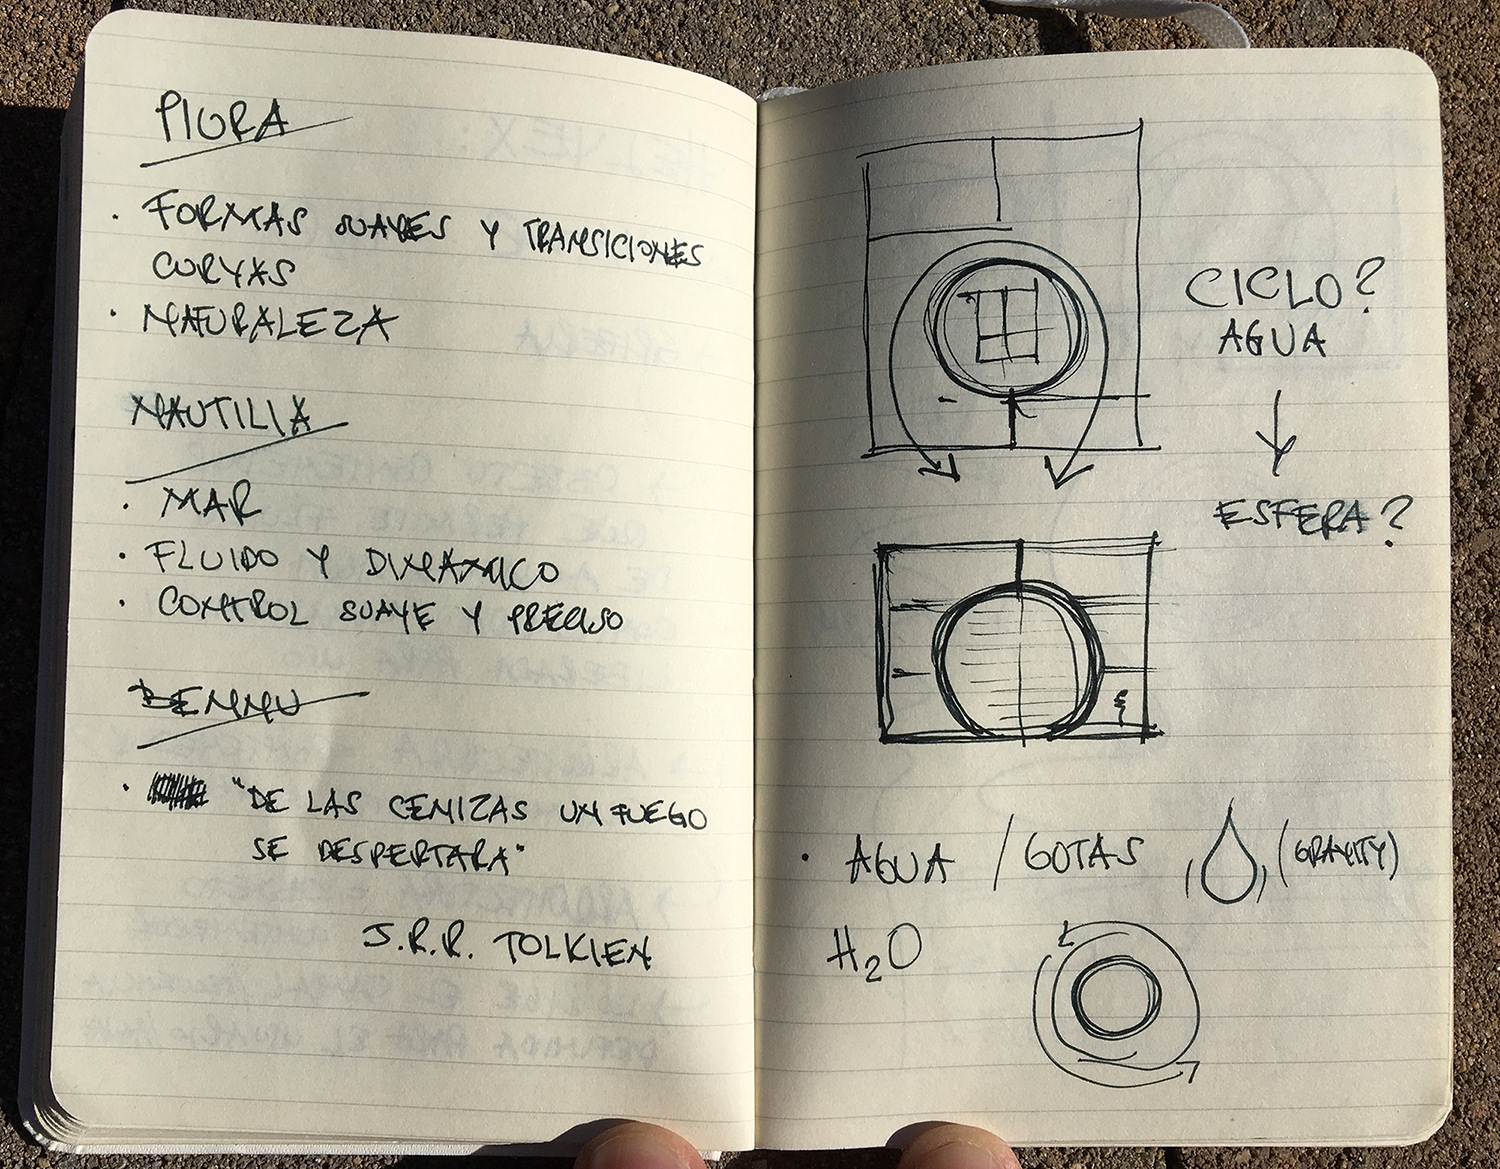 PIURA
· FORMAS SUAVES Y TRANSICIONES
CURVAS
· NATURALEZA
NAUTILIA
· MAR
· FLUIDO Y DINAMICO
· CONTROL SUAVE Y PRECISO
BENNU
· "DE LAS CENIZAS UN FUEGO
SE DESPERTARA"
J.R.R. TOLKIEN
CICLO?
AGUA
ESFERA?
· AGUA / GOTAS (GRAVITY)
H2O